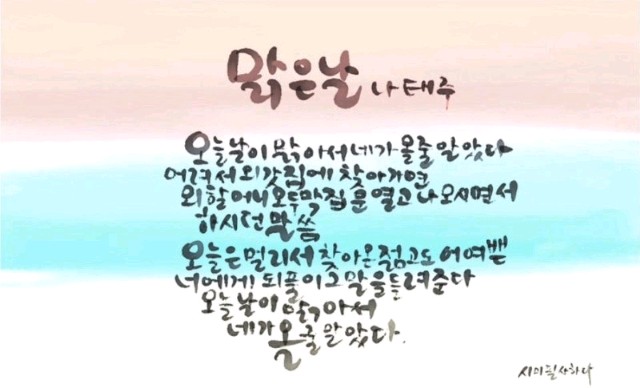 맑은 날 나태주
오늘 날이 맑아서 네가 올 줄 알았다
어려서 외갓집에 찾아가면
외할머니 오두막집 문 열고 나오시면서
하시던 말씀
오늘은 멀리서 찾아온 젊고도 어여쁜
너에게 되풀이 그 말을 들려준다
오늘 날이 맑아서
네가 올 줄 알았다.
시이필사하다